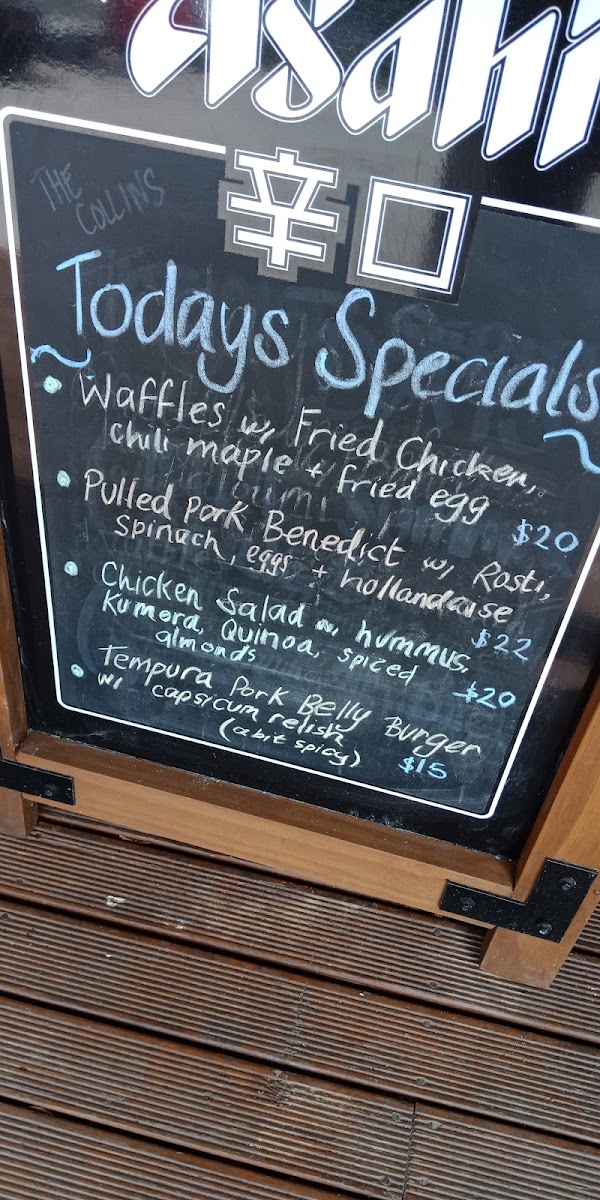 Asahi
辛口
THE
COLLINS
Todays Specials
Waffles w/ Fried Chicken,
chili maple + fried egg
$20
Pulled Pork Benedict w/ Rosti,
Spinach, eggs + hollandaise
$22
Chicken Salad w/ hummus,
Kumera, Quinoa, spiced
almonds
$20
Tempura Pork Belly Burger
w/ capsicum relish
(a bit spicy)
$15